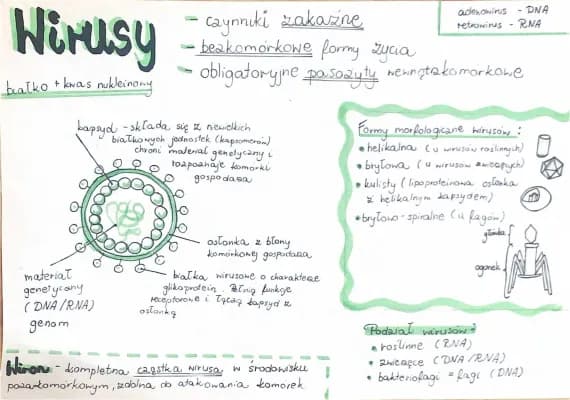 Wirusy
białko + kwas nukleinowy
- czynniki zakaźne
- bezkomórkowe formy życia
- obligatoryjne pasożyty wewnątrzkomórkowe
adenowirus - DNA
retrowirus - RNA
kapsyd - składa się z niewielkich
białkowych jednostek (kapsomerów)
chroni materiał genetyczny i
rozpoznaje komórki
gospodarza
osłonka z błony
komórkowej gospodarza
białka wirusowe o charakterze
glikoprotein. Pełnią funkcje
receptorowe i łączą kapsyd z
osłonką
materiał
genetyczny
(DNA/RNA)
genom
Formy morfologiczne wirusów:
• helikalna (u wirusów roślinnych)
• bryłowa (u wirusów zwierzęcych)
• kulisty (lipoproteinowa osłonka
z helikalnym kapsydem)
• bryłowo-spiralne (u fagów)
główka
ogonek
Podział wirusów:
• roślinne (RNA)
• zwierzęce (DNA/RNA)
• bakteriofagi = fagi (DNA)
Wirion - kompletna cząstka wirusa w środowisku
pozakomórkowym, zdolna do atakowania komórek